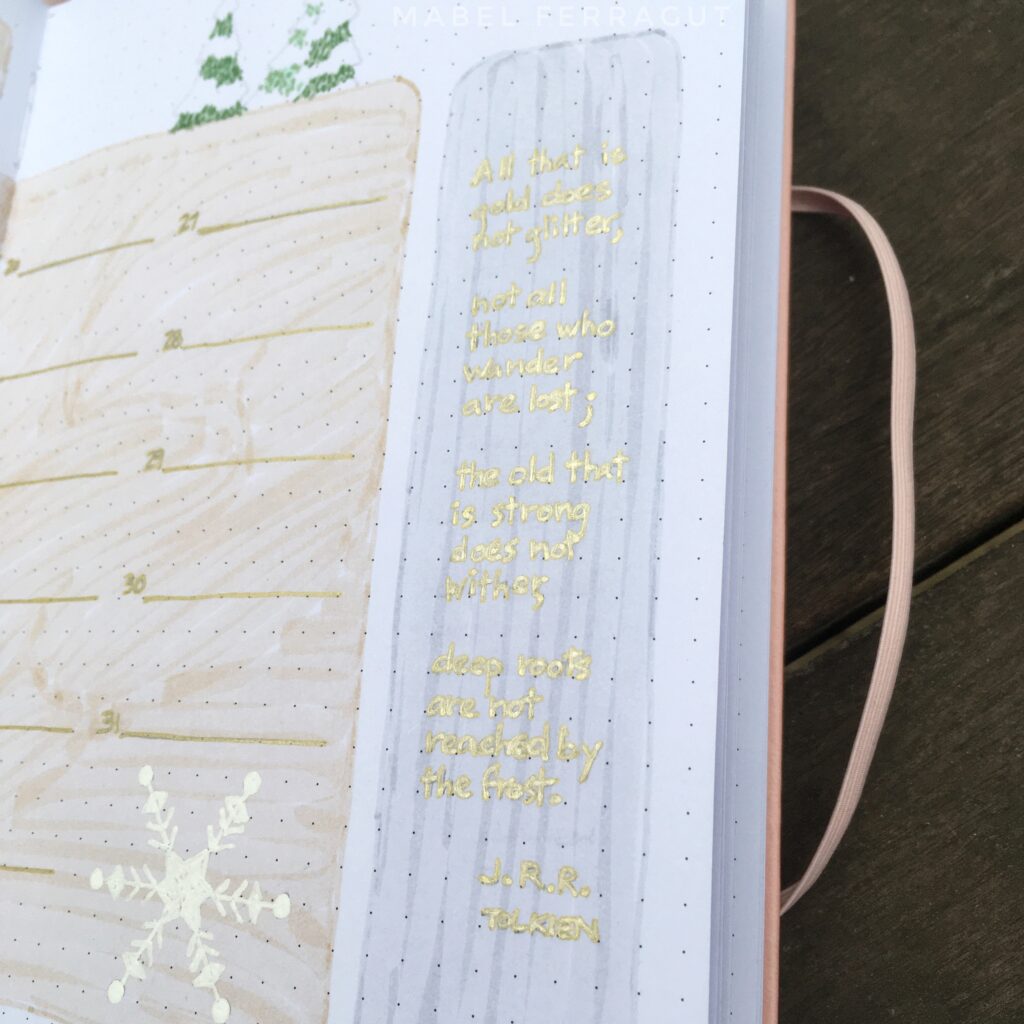 MABEL FERRAGUT
27
28
29
30
31
All that is
gold does
not glitter,
not all
those who
wander
are lost;
the old that
is strong
does not
wither,
deep roots
are not
reached by
the frost.
J.R.R.
TOLKIEN